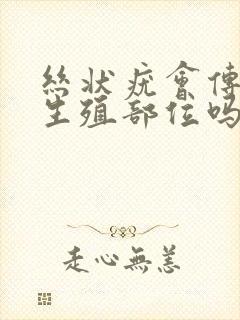 丝状疣會傳
生殖部位吗
走心無恙